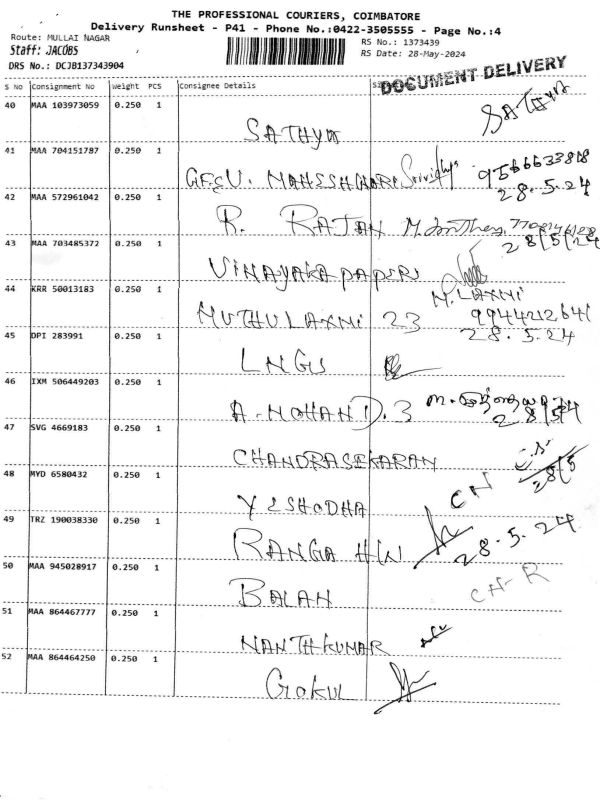 THE PROFESSIONAL COURIERS, COIMBATORE
Delivery Runsheet - P41 - Phone No.:0422-3505555 - Page No.:4
Route: MULLAI NAGAR
RS No.: 1373439
Staff: JACOBS
RS Date: 28-May-2024
DRS No.: DCJB137343904
DOCUMENT DELIVERY
S No Consignment No Weight PCS Consignee Details
40 MAA 103973059 0.250 1
SATHYA SATHYA
41 MAA 704151787 0.250 1
MAHESHWARI Srividhya 9566633818
28.5.24
42 MAA 572961042 0.250 1
R. RAJAN
28/5/24
43 MAA 703485372 0.250 1
VINAYAKA PAPERS
44 KRR 50013183 0.250 1
M. LAXMI
MUTHULAXMI 23 9944212641
28.5.24
45 DPI 283991 0.250 1
LNGS
46 IXM 506449203 0.250 1
A. MOHAN D. 3
28/5/24
47 SVG 4669183 0.250 1
CHANDRASEKARAN
28/5
48 MYD 6580432 0.250 1
YESHODHA CN
49 TRZ 190038330 0.250 1
RANGA H/W 28.5.24
50 MAA 945028917 0.250 1
BALAN CN-R
51 MAA 864467777 0.250 1
NANTHKUMAR
52 MAA 864464250 0.250 1
GOKUL